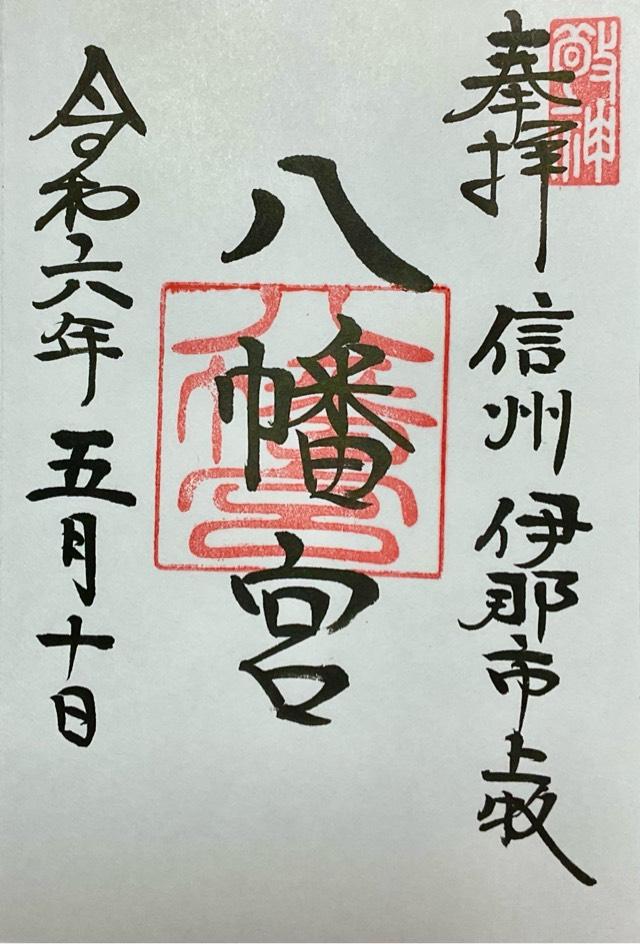 敬神
奉拝
信州 伊那市上牧
八幡宮
八幡宮
令和六年五月十日